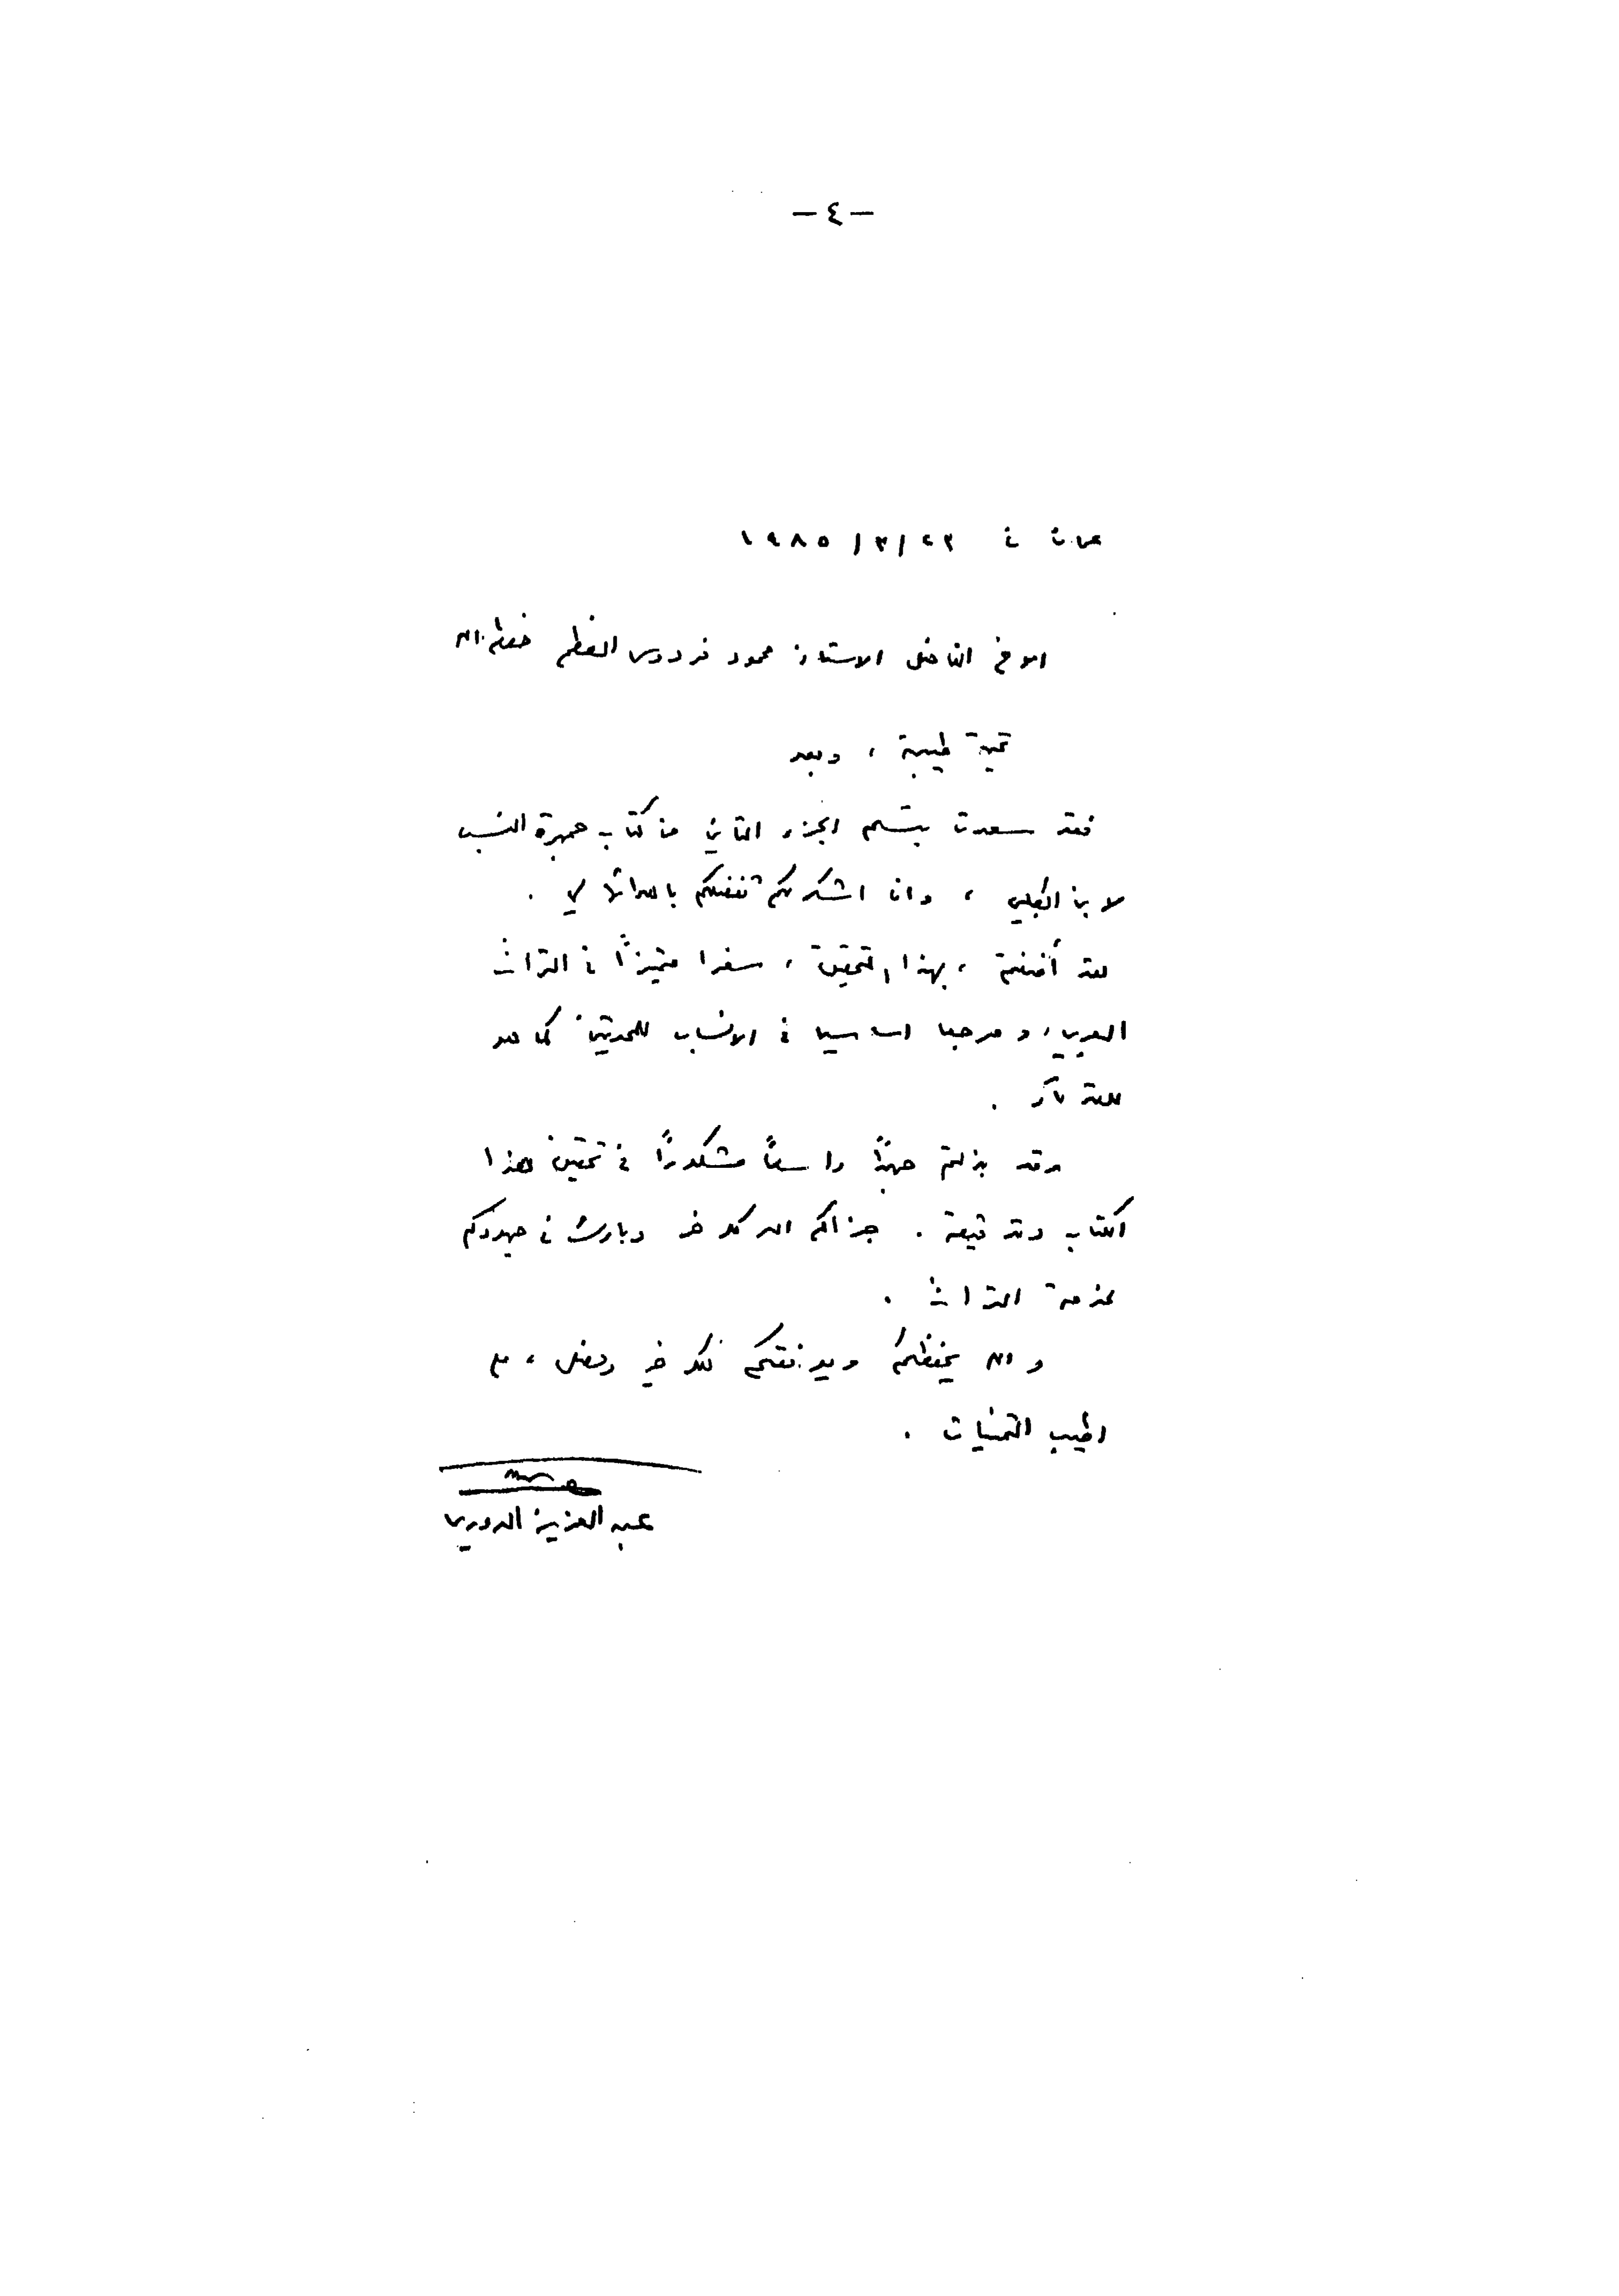 — ٤ —
عمان في ٢٣/٣/١٩٨٥
الاخ الفاضل الاستاذ محمود فردوس العظم حفظه الله
تحية طيبة ، وبعد
فقد سعدت بتسلم الجزء الثاني من كتاب جمهرة النسب
لابن الكلبي ، وانا اشكر لكم تفضلكم باهدائها لي .
لقد أضفتم ، بهذا التحقيق ، سفرا متميزاً في التراث
العربي ، ومرجعا اساسيا في الانساب للمحدثين كما هو
وقد بذلتم جهداً واسعاً مشكوراً في تحقيق هذا
الكتاب وتدقيقه . جزاكم الله كل خير وبارك في جهودكم
لخدمة التراث .
والله يحفظكم ويوفقكم لكل خير وفضل ، مع
اطيب التمنيات .
عبد العزيز الدوري